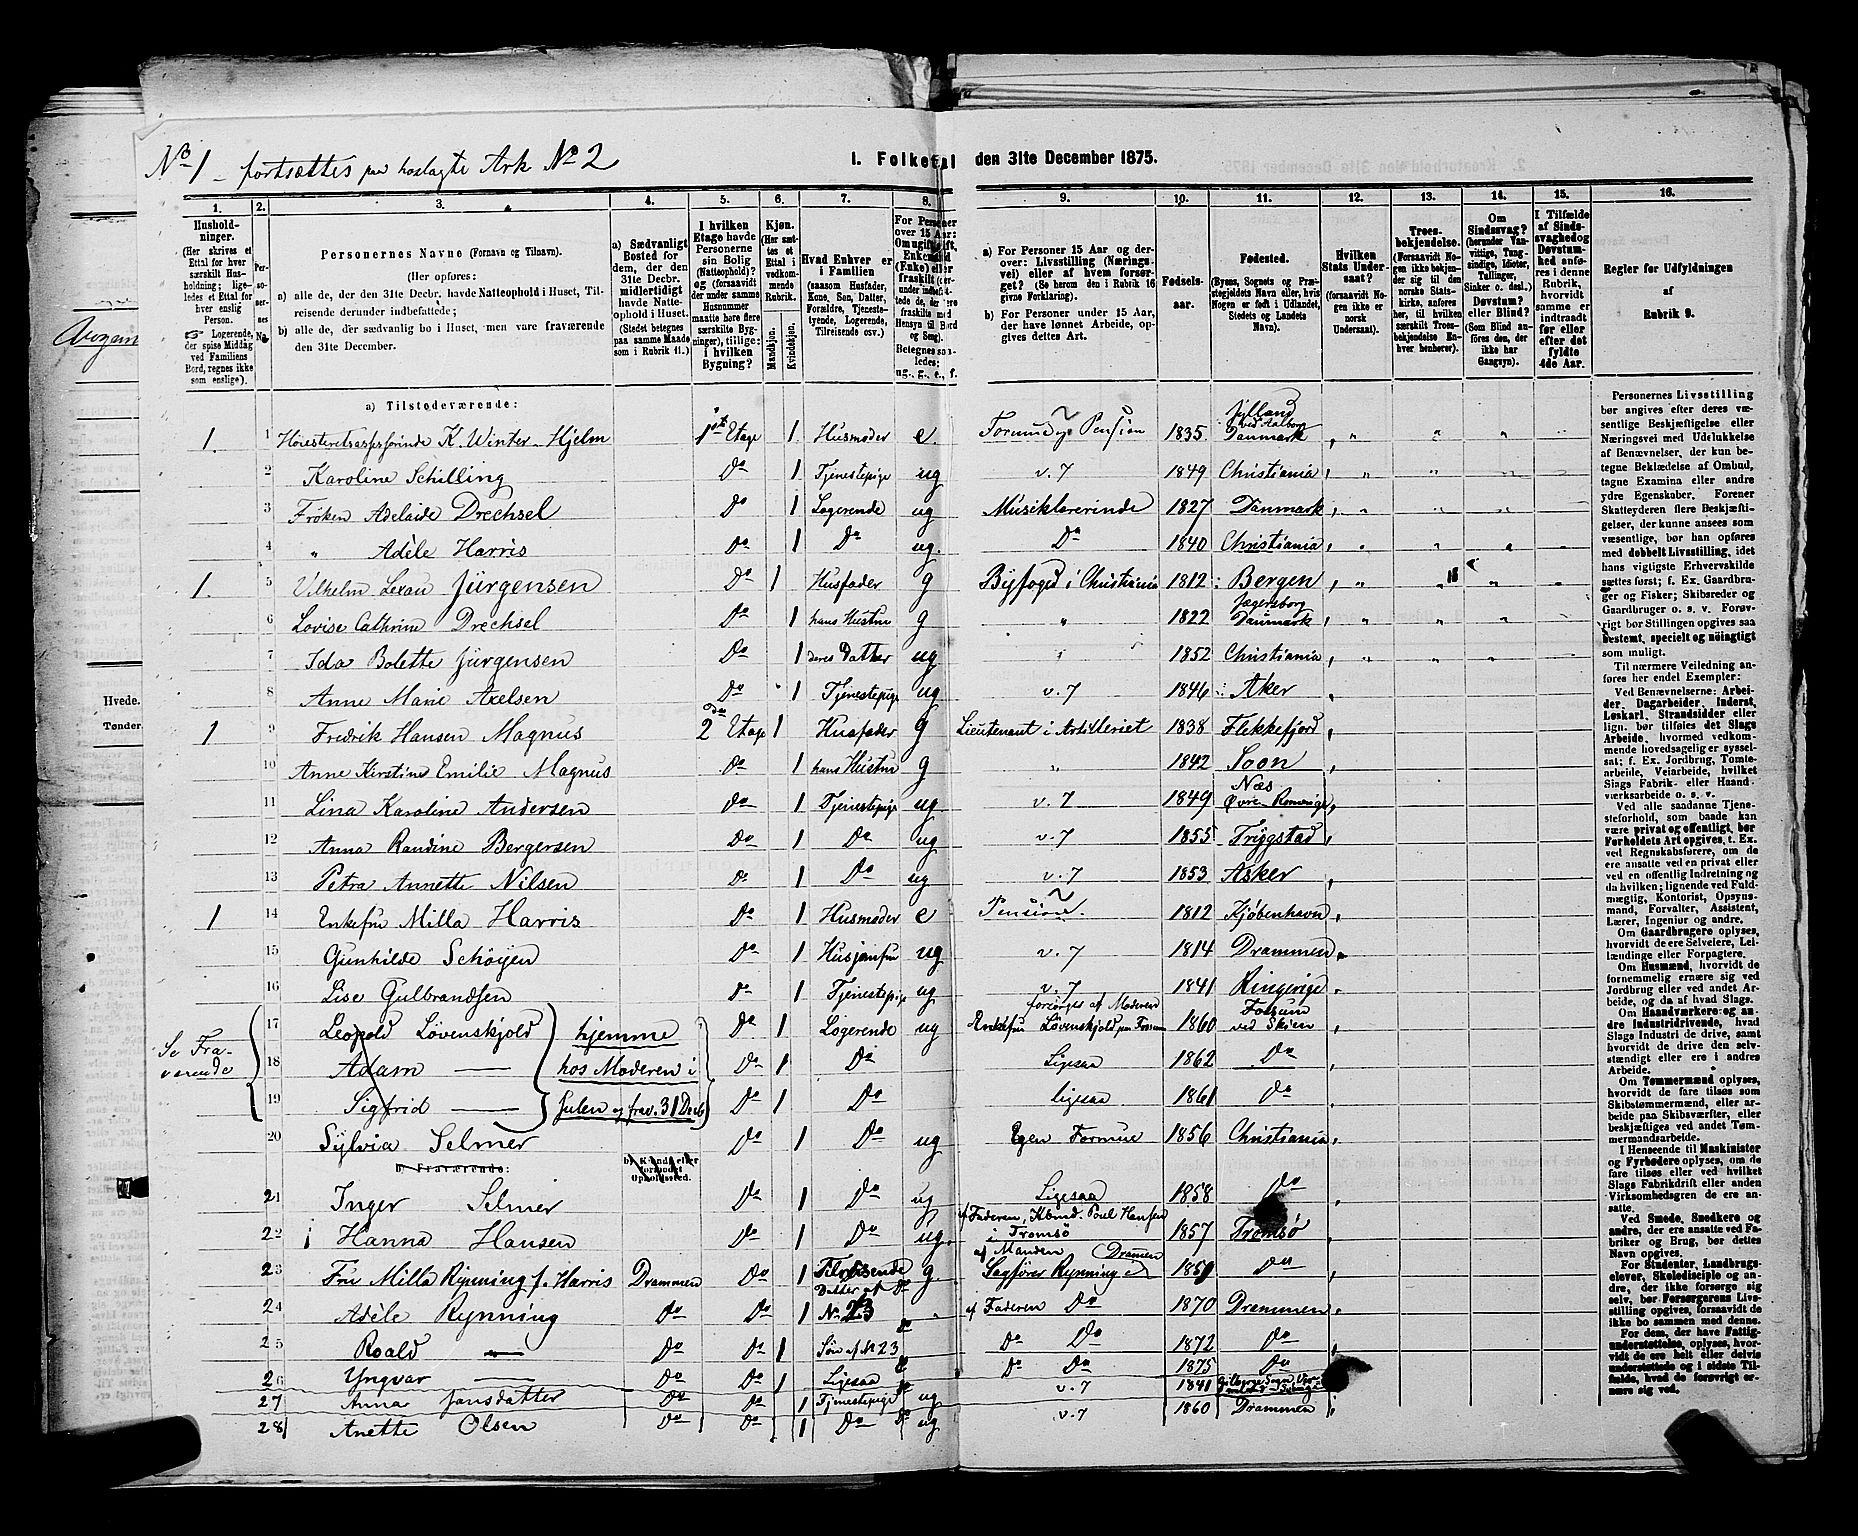 No 1 – fortsættes paa hoslagte Ark No 2
1. Folketal den 31te December 1875.
1. 2. 3. 4. 5. 6. 7. 8. 9. 10. 11. 12. 13. 14. 15. 16.
Husholdninger. (Her skrives et Ettal for hver særskilt Husholdning; ligeledes et Ettal for hver enslig Person. Logerende, der spise Middag ved Familiens Bord, regnes ikke som enslige).
Personernes No.
Personernes Navne (Fornavn og Tilnavn).
(Her opføres:
a) alle de, der den 31te Decbr. havde Natteophold i Huset, Tilreisende derunder indbefattede;
b) alle de, der sædvanlig bo i Huset, men vare fraværende den 31te December.
a) Sædvanligt Bosted for dem, der den 31te Decbr. midlertidigt havde Natteophold i Huset. (Stedet betegnes paa samme Maade som i Rubrik 11.)
I hvilken Etage havde Personerne sin Bolig (Natteophold)? og (forsaavidt der under samme Husnummer maatte høre flere særskilte Bygninger), tillige: i hvilken Bygning?
Kjøn. (Her sættes et Ettal i vedkommende Rubrik.
Mandkjøn. Kvindekjøn.
Hvad Enhver er i Familien (saasom Husfader, Kone, Søn, Datter, Forældre, Tjenestetyende, Logerende, Tilreisende osv.)
a) For Personer 15 Aar og derover: Livsstilling (Næringsvei) eller af hvem forsørget? (Se herom den i Rubrik 16 givne Forklaring).
b) For Personer under 15 Aar, der have lønnet Arbeide, opgives dettes Art.
Fødselsaar.
Fødested. (Byens, Sognets og Præstegjeldets Navn eller, hvis Nogen er født i Udlandet, Stedets og Landets Navn).
Hvilken Stats Undersaat? (forsaavidt Nogen ikke er norsk Undersaat).
Troesbekjendelse. (Forsaavidt Nogen ikke bekjender sig til den norske Statskirke, anføres her, til hvilken særskilt Troesbekjendelse Enhver henhører).
Om Sindssvag? (herunder Vanvittige, Tungsindige, Idioter, Tullinger, Sinker o. desl.). Døvstum? eller Blind? (Som Blind anføres den, der ikke har Gangsyn).
I Tilfælde af Sindssvaghed og Døvstumhed anføres i denne Rubrik, hvorvidt samme er indtraadt før eller efter det fyldte 4de Aar.
Regler for Udfyldningen af Rubrik 9.
a) Tilstedeværende:
1 1 K. Winter-Hjelm 1ste Etage 1 Husmoder e Pension 1835 Jylland ved Aalborg Danmark
2 Karoline Schilling Do 1 Tjenestepige ug v. 7 1849 Christiania
3 Frøken Adelaide Drechsel Do 1 Logerende ug Musiklærerinde 1827 Danmark
4 " Adèle Harris Do 1 Do ug. Do 1840 Christiania
1 5 Vilhelm Lexau Jürgensen Do 1 Husfader g Byfoged i Christiania 1812 Bergen
6 Lovise Cathrine Drechsel Do 1 hans Hustru g " 1822 Jægersborg Danmark
7 Ida Bolette Jürgensen Do 1 deres Datter ug 1852 Christiania
8 Anne Marie Axelsen Do 1 Tjenestepige ug v. 7 1846 Aker
1 9 Fredrik Hansen Magnus 2den Etage 1 Husfader g Lieutenant i Artilleriet 1838 Flekkefjord
10 Anne Kirstine Emilie Magnus Do 1 hans Hustru g " 1842 Soon
11 Lina Karoline Andersen Do 1 Tjenestepige ug v. 7 1849 Næs Øvre Romerige
12 Anna Randine Bergersen Do 1 Do ug v. 7 1855 Trygstad
13 Petra Annette Nilsen Do 1 Do ug v. 7 1853 Asker
1 14 Enkefru Milla Harris Do 1 Husmoder e Pension. 1812 Kjøbenhavn
15 Gunhilde Schøijen Do 1 Husjomfru ug v. 7 1814 Drammen
16 Lise Gulbrandsen Do 1 Tjenestepige ug v. 7 1841 Ringerige
Se Fraværende
17 Leopold Løvenskjold hjemme Do 1 Logerende ug forsørges af Moderen Enkefru Løvenskjold paa Fossum 1860 Fossum ved Skien
18 Adam — hos Moderen i Do 1 Do Ligesaa 1862 Do
19 Sigfrid — Julen og frav. 31 Decb Do 1 Do Ligesaa 1861 Do
20 Sylvia Selmer Do 1 Do ug Egen Formue 1856 Christiania
b) Fraværende: b) Kjendt eller formodet Opholdssted.
21 Inger Selmer Do 1 Do ug Ligesaa 1858 Do
22 Hanna Hansen Do 1 Do ug. af Faderen, Kbmd. Poul Hansen i Tromsø 1857 Tromsø
23 Fru Milla Rynning f. Harris Drammen Do 1 Tilreisende g. af Manden Sagfører Rynning i Dramen 1851 Do
24 Adèle Rynning Do Do 1 Datter af No 23 af Faderen Do 1870 Drammen
25 Roald — Do Do 1 Søn af No 23 Do Do 1872 Do
26 Yngvar — Do Do 1 Ligesaa Do Do 1875 Do
27 Anna Jansdatter Do Do 1 Tjenestepige ug v. 7 1841
28 Anette Olsen Do Do 1 Do ug v. 7 1860 Drammen
Personernes Livsstilling bør angives efter deres væsentlige Beskjæftigelse eller Næringsvei med Udelukkelse af Benævnelser, der kun betegne Beklædelse af Ombud, tagne Examina eller andre ydre Egenskaber. Forener Skatteyderen flere Beskjæftigelser, der kunne ansees som væsentlige, bør han opføres med dobbelt Livsstilling, idet hans vigtigste Erhvervskilde sættes først; f. Ex. Gaardbruger og Fisker; Skibsreder og Gaardbruger o. s. v. Forøvrigt bør Stillingen opgives saa bestemt, specielt og nøiagtigt som muligt.
Til nærmere Veiledning anføres her endel Exempler:
Ved Benævnelserne: Arbeider, Dagarbeider, Inderst, Løskarl, Strandsidder eller lign. bør tilføies det Slags Arbeide, hvormed vedkommende hovedsagelig er sysselsat; f. Ex. Jordbrug, Tomtearbeide, Veiarbeide, hvilket Slags Fabrik- eller Haandværksarbeide o. s. v.
Ved alle saadanne Tjenesteforhold, som baade kan være privat og offentligt, bør Forholdets Art opgives, t. Ex. ved Regnskabsførere, om de ere ansatte ved en privat eller ved en offentlig Indretning og da hvilken; lignende ved Fuldmægtig, Kontorist, Opsynsmand, Forvalter, Assistent, Lærer, Ingeniør og andre.
Om Gaardbrugere oplyses, hvorvidt de ere Selveiere, Leilændinge eller Forpagtere.
Om Husmænd, hvorvidt de fornemmelig ernære sig ved Jordbrug eller ved andet Arbeide, og da af hvad Slags.
Om Haandværkere og andre Industridrivende, hvad Slags Industri de drive, samt hvorvidt de drive den selvstændigt eller ere i andres Arbeide.
Om Tømmermænd oplyses, hvorvidt de fare tilsøs som Skibstømmermænd, eller arbeide paa Skibsværfter, eller beskjæftiges ved andet Tømmermandsarbeide.
I Henseende til Maskinister og Fyrbødere oplyses, om de fare tilsøs eller ved hvilket Slags Fabrikdrift eller anden Virksomhedsgren de ere ansatte.
Ved Smede, Snedkere og andre, der ere ansatte ved Fabriker og Brug, bør dettes Navn opgives.
For Studenter, Landbrugselever, Skoledisciple og andre, der ikke forsørge sig selv, bør Forsørgerens Livsstilling opgives, forsaavidt de ikke bo sammen med denne.
For dem, der have Fattigunderstøttelse, oplyses, hvorvidt de ere helt eller delvis understøttede og i sidste Tilfælde, hvad de forøvrigt ernære sig ved.
Hvede.
Tønder.